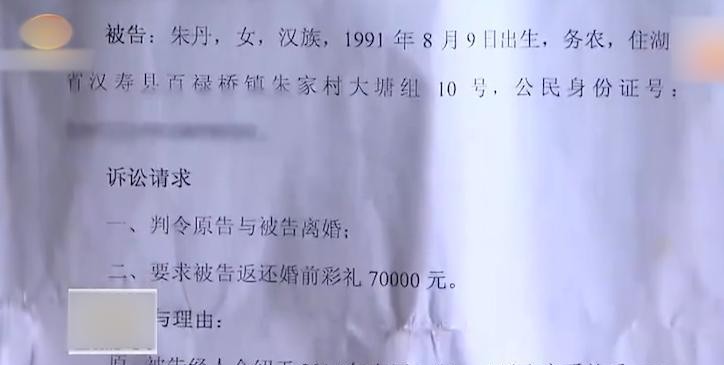 被告：朱丹，女，汉族，1991 年 8 月 9 日出生，务农，住湖
省汉寿县百禄桥镇朱家村大塘组 10 号，公民身份证号：
诉讼请求
一、判令原告与被告离婚；
二、要求被告返还婚前彩礼 70000 元。
与理由：